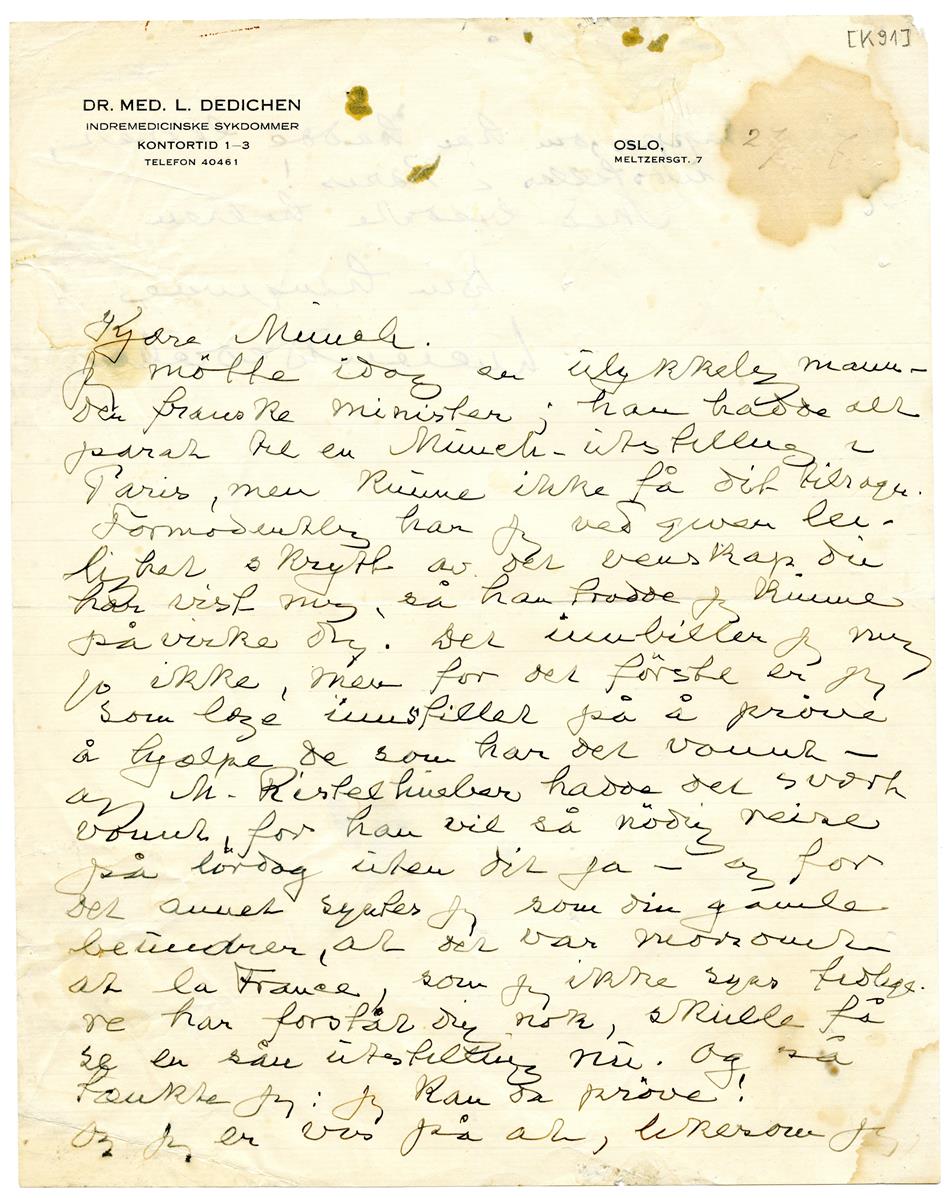 [K91]
DR. MED. L. DEDICHEN
INDREMEDICINSKE SYKDOMMER
KONTORTID 1–3
TELEFON 40461
OSLO,
MELTZERSGT. 7
Kjære Munch.
Jeg mötte idag en ulykkelig mann –
den franske minister; han hadde alt
parat til en Munch-utstilling i
Paris, men kunne ikke få dit tilsagn.
Formodentlig har jeg ved given lei-
lighet skrytt av det venskap du
har vist mig, så han trodde jeg kunne
påvirke dig. Det innbiller jeg mig
jo ikke, men for det förste er jeg
som læge innstillet på å pröve
å hjælpe de som har det vonnt –
og M. Ristelhueber hadde det svært
vonnt, for han vil så nödig reise
på lördag uten dit ja – og for
det annet syntes jeg som din gamle
beundrer, at det var morsomt
at la France, som jeg ikke syns tidlige-
re har forståt dig nok, skulle få
se en sån utstilling nu. Og så
tænkte jeg: jeg kan da pröve!
Og jeg er vis på at, likesom jeg